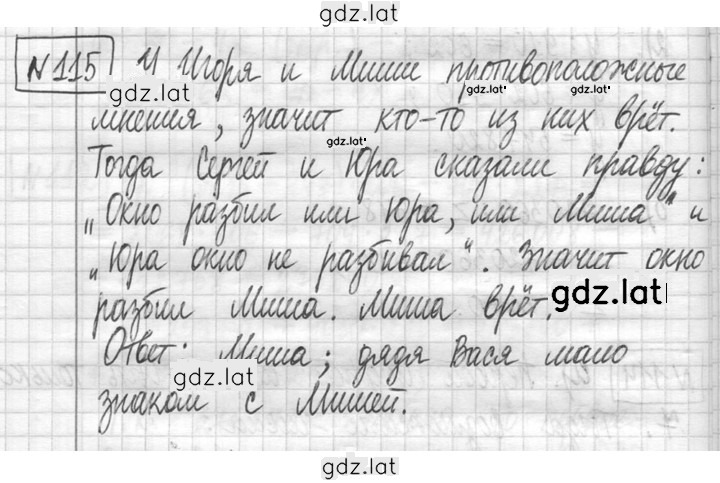 gdz.lat
№115 У Игоря и Миши противоположные
gdz.lat gdz.lat gdz.lat
мнения, значит кто-то из них врёт.
gdz.lat
Тогда Сергей и Юра сказали правду:
„Окно разбил или Юра, или Миша“ и
„Юра окно не разбивал“. Значит окно
разбил Миша. Миша врёт.
gdz.lat
Ответ: Миша; дядя Вася мало
gdz.lat
знаком с Мишей.
gdz.lat